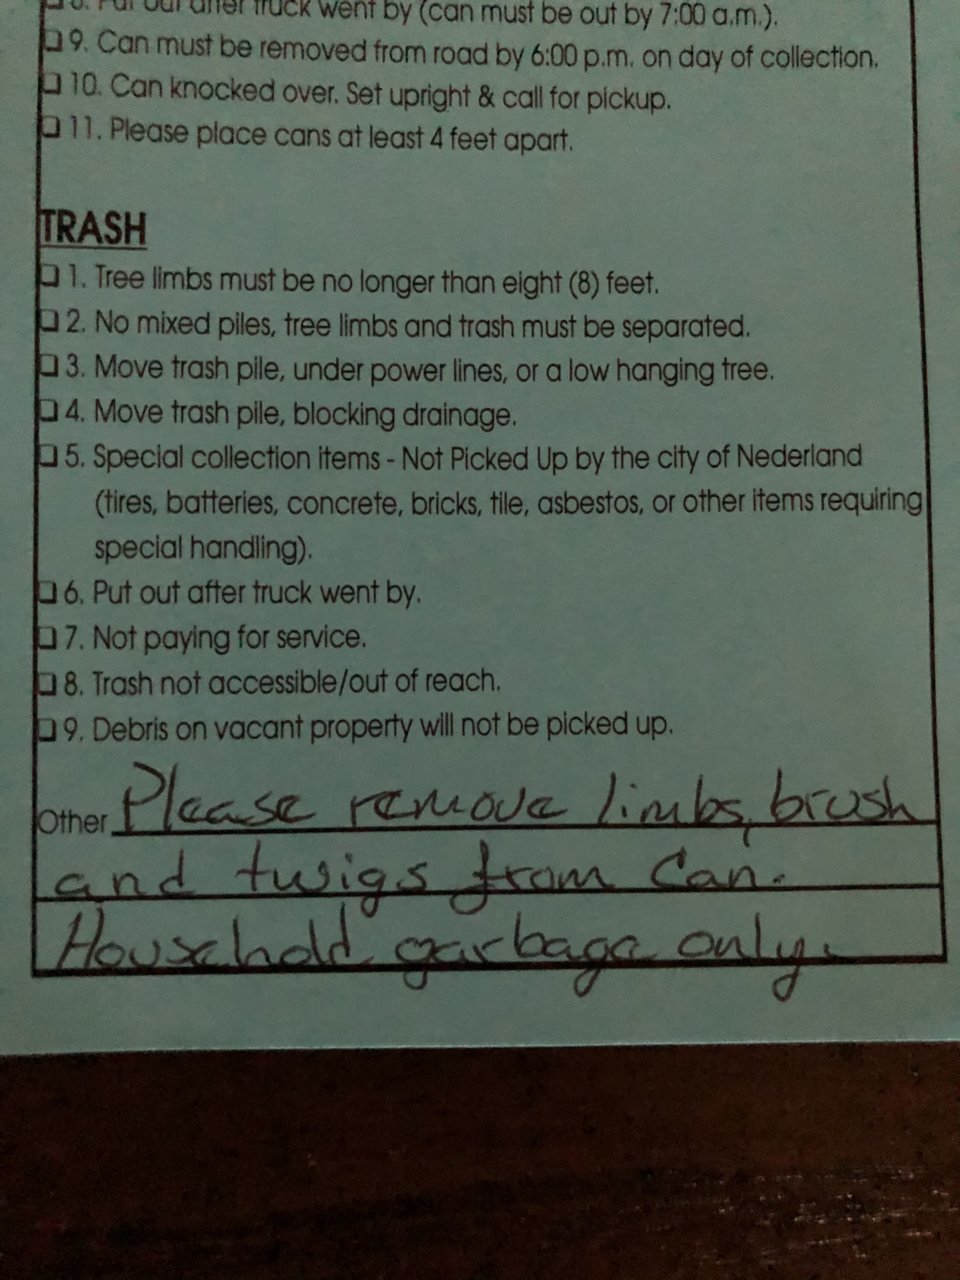 8. Put out after truck went by (can must be out by 7:00 a.m.).
9. Can must be removed from road by 6:00 p.m. on day of collection.
10. Can knocked over. Set upright & call for pickup.
11. Please place cans at least 4 feet apart.
TRASH
1. Tree limbs must be no longer than eight (8) feet.
2. No mixed piles, tree limbs and trash must be separated.
3. Move trash pile, under power lines, or a low hanging tree.
4. Move trash pile, blocking drainage.
5. Special collection items - Not Picked Up by the city of Nederland
(tires, batteries, concrete, bricks, tile, asbestos, or other items requiring
special handling).
6. Put out after truck went by.
7. Not paying for service.
8. Trash not accessible/out of reach.
9. Debris on vacant property will not be picked up.
Other Please remove limbs, brush
and twigs from Can.
Household garbage only.